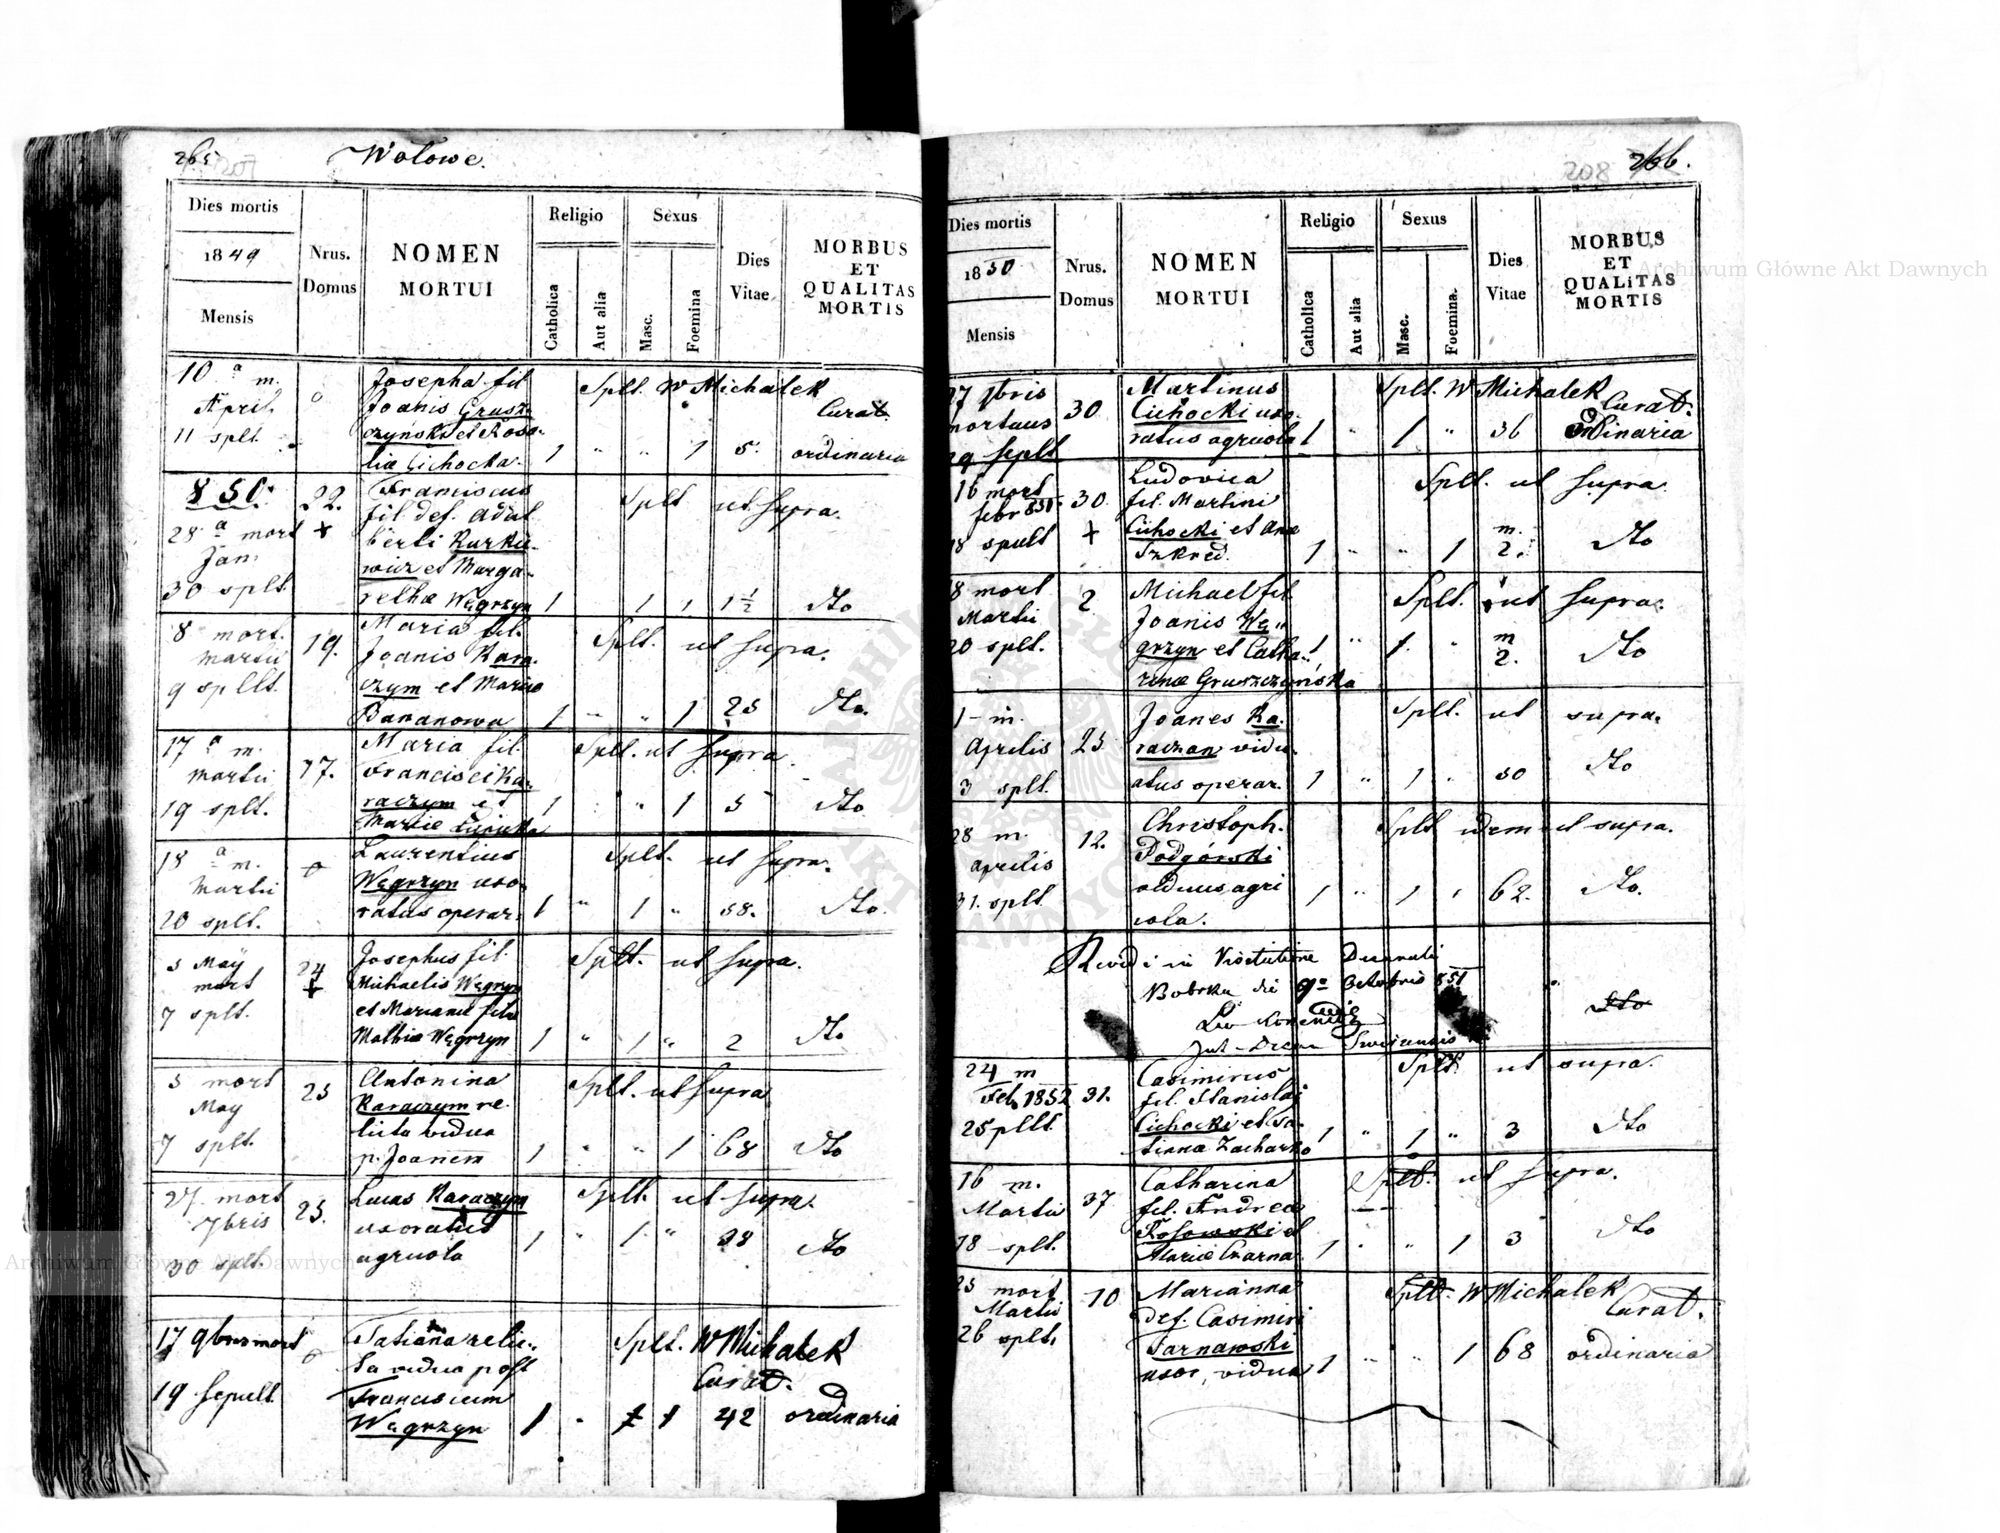 265
Wołowe.
Dies mortis
1849
Mensis
Nrus.
Domus
NOMEN
MORTUI
Religio
Catholica
Aut alia
Sexus
Masc.
Foemina
Dies
Vitae
MORBUS
ET
QUALITAS
MORTIS
10 a m. Josepha fil Splt. W Michalek
April. Joanis Grusz- Curat.
11 splt. czyński et Rosa-
lia Cichocka. 1 " " 1 5. ordinaria
850. 22. Franciscus Splt ut supra.
fil. def. Adal
28 a mort berti Kurkie-
Jan. wicz et Marga-
30 splt. rethæ Węgrzyn 1 1 1 1 1/2 dto
8 mort. 19. Maria fil. Splt. ut supra.
Martii Joanis Kara-
9 spllt. czym et Maria
Bananowa 1 " " 1 25 dto.
17 a m. Maria fil. Splt. ut supra.
Martii 17. Francisci Ka-
19 splt. raczym et 1 " 1 5 dto
Mariæ
18 a m. Laurentius Splt. ut supra.
Martii Węgrzyn uxo-
20 splt. ratus operar. 1 " 1 " 58. dto.
5 May Josephus fil. Splt. ut supra.
mort 24 Michaelis Węgrzyn
7 splt. et Marianæ filia
Mathiæ Węgrzyn 1 " 1 " 2 dto
5 mort 25 Antonina Splt. ut supra
May Karaczym re-
7 splt. licta vidua
p. Joanem 1 " " 1 68 dto
27. mort Lucas Karaczym Splt. ut supra.
7bris 25. uxoratus
30 splt. agricola 1 " 1 " 38 dto
17 9bris mort Tatiana relic- Splt. W Michalek
ta vidua post Curat.
19 sepult. Franciscum
Węgrzyn 1 - 1 42 ordinaria
208 266.
Dies mortis
1850
Mensis
Nrus.
Domus
NOMEN
MORTUI
Religio
Catholica
Aut alia
Sexus
Masc.
Foemina.
Dies
Vitae
MORBUS
ET
QUALITAS
MORTIS
27 9bris Martinus Splt. W Michalek
mortuus 30 Cichocki uxo- Curat.
29 seplt ratus agricola 1 " 1 " 36 ordinaria
16 mort Ludovica Splt. ut supra.
febr 851. 30. fil. Martini
18 spult Cichocki et Ana m.
Szkred. 1 " " 1 2. dto
18 mort Michael fil Splt. ut supra.
Martii 2 Joanis Wę- m
20 splt. grzyn et Catha- 1 " 1. " 2. dto
rinæ Gruszczyńska
1 - m. Joanes Ka- Splt. ut supra.
Aprilis 25 raczan vidu-
3 splt. atus operar. 1 " 1 " 50 dto
28 m. Christoph. Splt idem ut supra.
Aprilis 12. Podgórski
31. splt. viduus agri 1 " 1 62. dto.
cola.
Revidi in Visitatione Decanali
Bobrka die 9a Octobris 851
dto
24 m Casimirus Splt. ut supra.
Feb 1852 31. fil. Stanislaj
25 pllt. Cichocki et Ta-
tianæ Zacharko 1 " 1 " 3 dto
16 m. Catharina Splt. ut supra.
Martii 37 fil. Andrea
18 - splt. Kosowski et
Mariæ Czarna. 1 " " 1 3 dto
25 mort Marianna Splt. W Michalek
Martii 10 def. Casimiri Curat.
26 splt. Tarnawski
uxor, vidua 1 " " 1 68 ordinaria
Archiwum Główne Akt Dawnych
Archiwum Główne Akt Dawnych